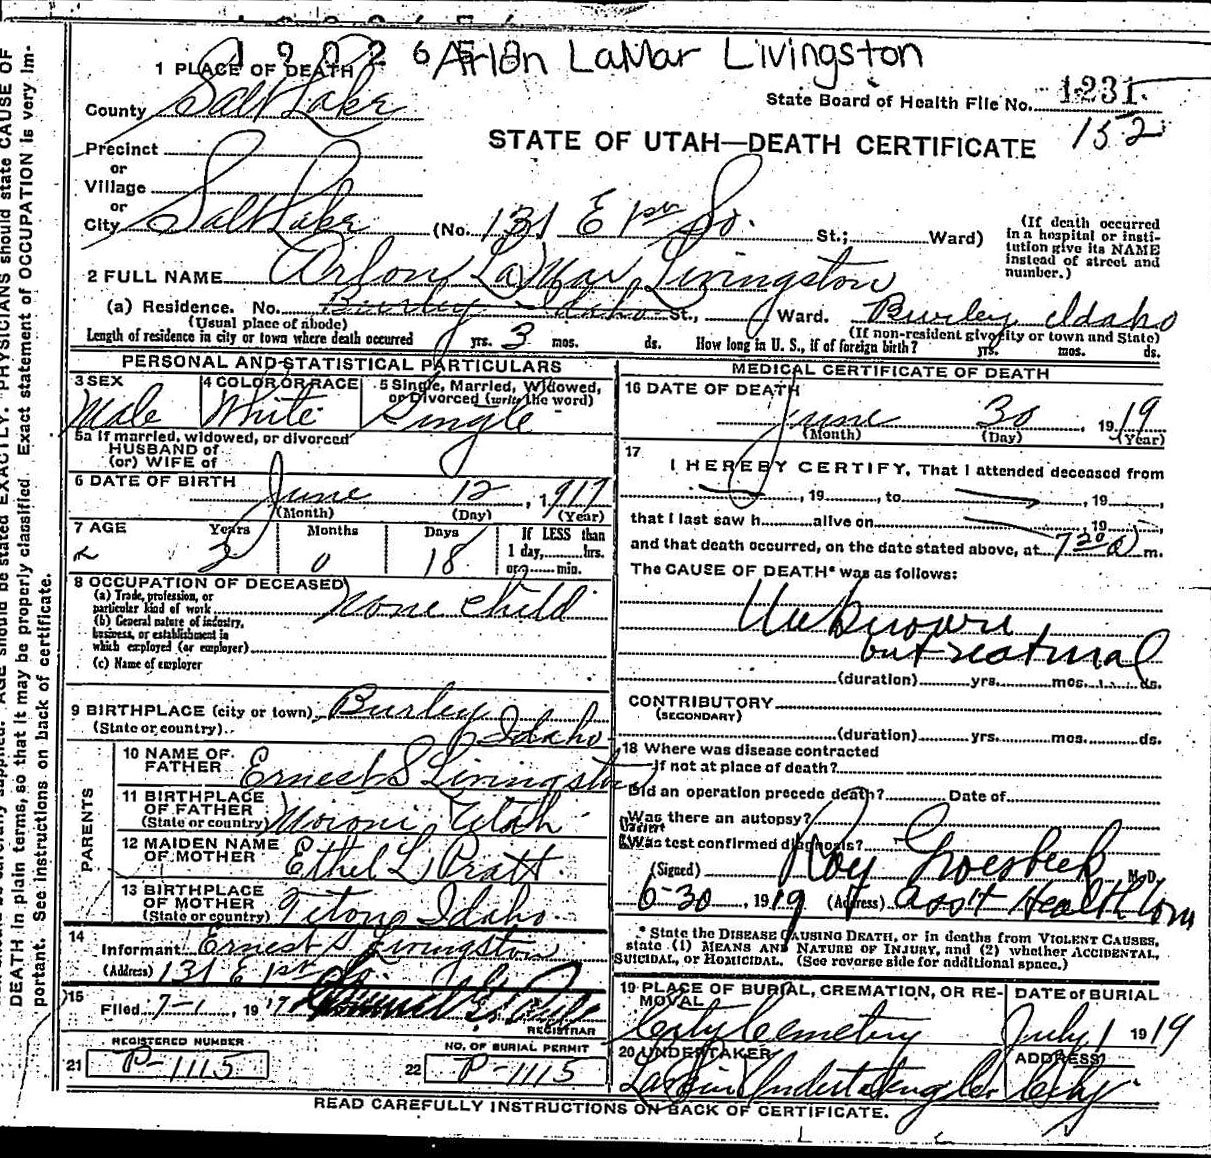 1 9 0 2 6 5
Arlon LaMar Livingston
1 PLACE OF DEATH
County Salt Lake
State Board of Health File No. 1231
152
STATE OF UTAH—DEATH CERTIFICATE
Precinct
or
Village
or
City Salt Lake (No. 131 E 1st So. St.; Ward)
(If death occurred
in a hospital or insti-
tution give its NAME
instead of street and
number.)
2 FULL NAME Arlon LaMar Livingston
(a) Residence. No. Burley Idaho St., Ward. Burley Idaho
(Usual place of abode) (If non-resident give city or town and State)
Length of residence in city or town where death occurred yrs. 3 mos. ds. How long in U. S., if of foreign birth? yrs. mos. ds.
PERSONAL AND STATISTICAL PARTICULARS
3 SEX 4 COLOR OR RACE 5 Single, Married, Widowed,
or Divorced (write the word)
Male White Single
5a If married, widowed, or divorced
HUSBAND of
(or) WIFE of
6 DATE OF BIRTH
June 12, 1917
(Month) (Day) (Year)
7 AGE Years Months Days If LESS than
1 day, hrs.
or min.
2 0 18
8 OCCUPATION OF DECEASED
(a) Trade, profession, or
particular kind of work None child
(b) General nature of industry,
business, or establishment in
which employed (or employer)
(c) Name of employer
9 BIRTHPLACE (city or town) Burley
(State or country) Idaho
PARENTS
10 NAME OF
FATHER Ernest S Livingston
11 BIRTHPLACE
OF FATHER
(State or country) Moroni Utah
12 MAIDEN NAME
OF MOTHER Ethel L Pratt
13 BIRTHPLACE
OF MOTHER
(State or country) Teton Idaho
14
Informant Ernest S Livingston
(Address) 131 E 1st So.
15
Filed 7-1, 19
REGISTRAR
REGISTERED NUMBER
21 P-1115
NO. OF BURIAL PERMIT
22 P-1115
MEDICAL CERTIFICATE OF DEATH
16 DATE OF DEATH
June 30, 1919
(Month) (Day) (Year)
17
I HEREBY CERTIFY, That I attended deceased from
, 19, to , 19,
that I last saw h alive on , 19
and that death occurred, on the date stated above, at 7 30 a m.
The CAUSE OF DEATH* was as follows:
Unknown
but natural
(duration) yrs. mos. ds.
CONTRIBUTORY
(SECONDARY)
(duration) yrs. mos. ds.
18 Where was disease contracted
if not at place of death?
Did an operation precede death? Date of
Was there an autopsy?
What test confirmed diagnosis?
(Signed) Roy Groesbeck M. D.
6-30, 1919 (Address) Ass't Health Com
* State the DISEASE CAUSING DEATH, or in deaths from VIOLENT CAUSES,
state (1) MEANS AND NATURE OF INJURY, and (2) whether ACCIDENTAL,
SUICIDAL, or HOMICIDAL. (See reverse side for additional space.)
19 PLACE OF BURIAL, CREMATION, OR RE-
MOVAL
DATE of BURIAL
City Cemetery July 1 1919
20 UNDERTAKER ADDRESS
Larkin Undertaking Co City
READ CAREFULLY INSTRUCTIONS ON BACK OF CERTIFICATE.
AGE should be stated EXACTLY. PHYSICIANS should state CAUSE OF
DEATH in plain terms, so that it may be properly classified. Exact statement of OCCUPATION is very im-
portant. See instructions on back of certificate.